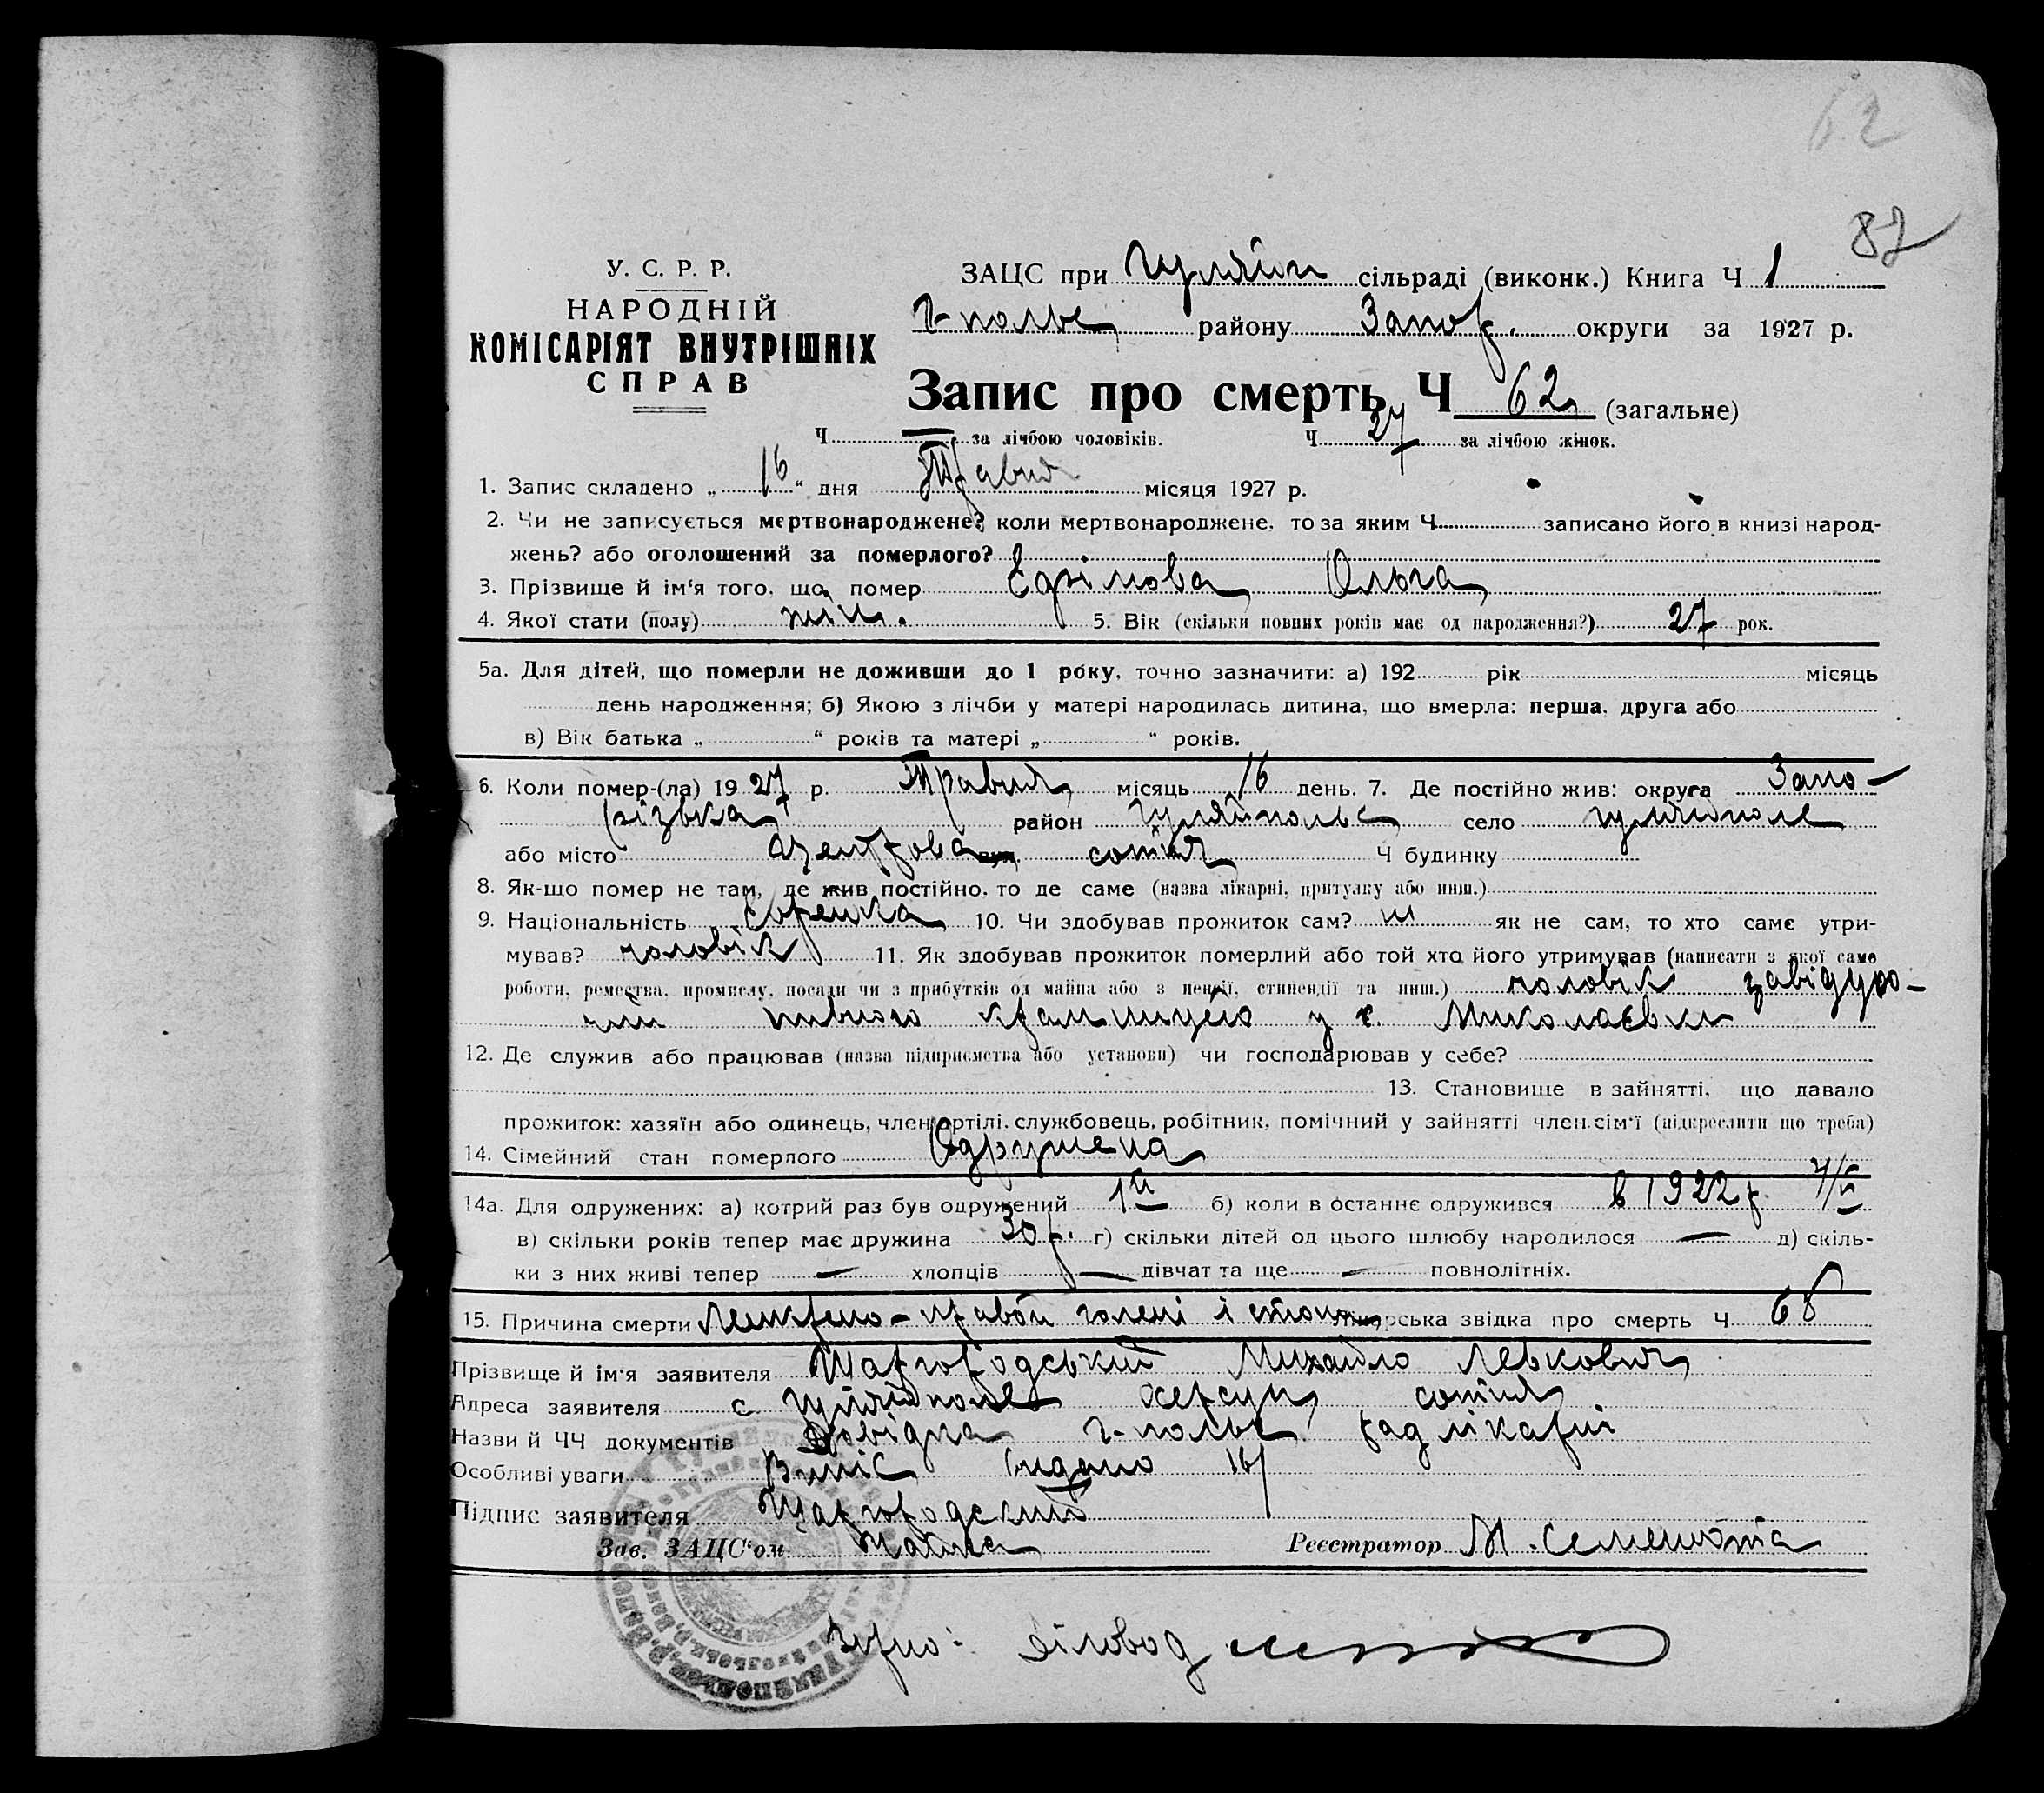 62
87
У. С. Р. Р.
НАРОДНІЙ
КОМІСАРІЯТ ВНУТРІШНІХ
СПРАВ
ЗАЦС при Гуляйп сільраді (виконк.) Книга Ч 1
Г-польс району Запор. округи за 1927 р.
Запис про смерть Ч 62 (загальне)
Ч — за лічбою чоловіків. Ч 27 за лічбою жінок.
1. Запис складено „ 16 “ дня Травня місяця 1927 р.
2. Чи не записується мертвонароджене? коли мертвонароджене, то за яким Ч записано його в книзі народ-
жень? або оголошений за померлого?
3. Прізвище й ім‘я того, що помер Єфімова Ольга
4. Якої стати (полу) жін. 5. Вік (скільки повних років має од народження?) 27 рок.
5а. Для дітей, що померли не доживши до 1 року, точно зазначити: а) 192 рік місяць
день народження; б) Якою з лічби у матері народилась дитина, що вмерла: перша, друга або
в) Вік батька „ “ років та матері „ “ років.
6. Коли помер-(ла) 19 27 р. Травня місяць 16 день. 7. Де постійно жив: округа Запо-
різька район Гуляйпольс село Гуляйполе
або місто Центрова сотня Ч будинку
8. Як-що помер не там, де жив постійно, то де саме (назва лікарні, притулку або инш.)
9. Національність Єврейка 10. Чи здобував прожиток сам? ні як не сам, то хто саме утри-
мував? чоловік 11. Як здобував прожиток померлий або той хто його утримував (написати з якої саме
роботи, ремества, промислу, посади чи з прибутків од майна або з пенсії, стипендії та инш.) чоловік завідую-
чий пивного крамницею у с. Миколаєвки
12. Де служив або працював (назва підприємства або установи) чи господарював у себе?
13. Становище в зайнятті, що давало
прожиток: хазяїн або одинець, член артілі, службовець, робітник, помічний у зайнятті член сім‘ї (підкреслити що треба)
14. Сімейний стан померлого Одружена
14а. Для одружених: а) котрий раз був одружений 1й б) коли в останнє одружився в 1922 р.
в) скільки років тепер має дружина 30 р. г) скільки дітей од цього шлюбу народилося — д) скіль-
ки з них живі тепер — хлопців — дівчат та ще — повнолітніх.
15. Причина смерти правой голені і стопи лікарська звідка про смерть Ч 68
Прізвище й ім‘я заявителя Шаргородський Михайло Левкович
Адреса заявителя с Гуляйполе Херсун сотня
Назви й ЧЧ документів Довідка Г-польс радлікарні
Особливі уваги Випіс видано
Підпис заявителя Шаргородский
Зав. ЗАЦС‘ом Реєстратор М. Семенюта
Вірно: діловод